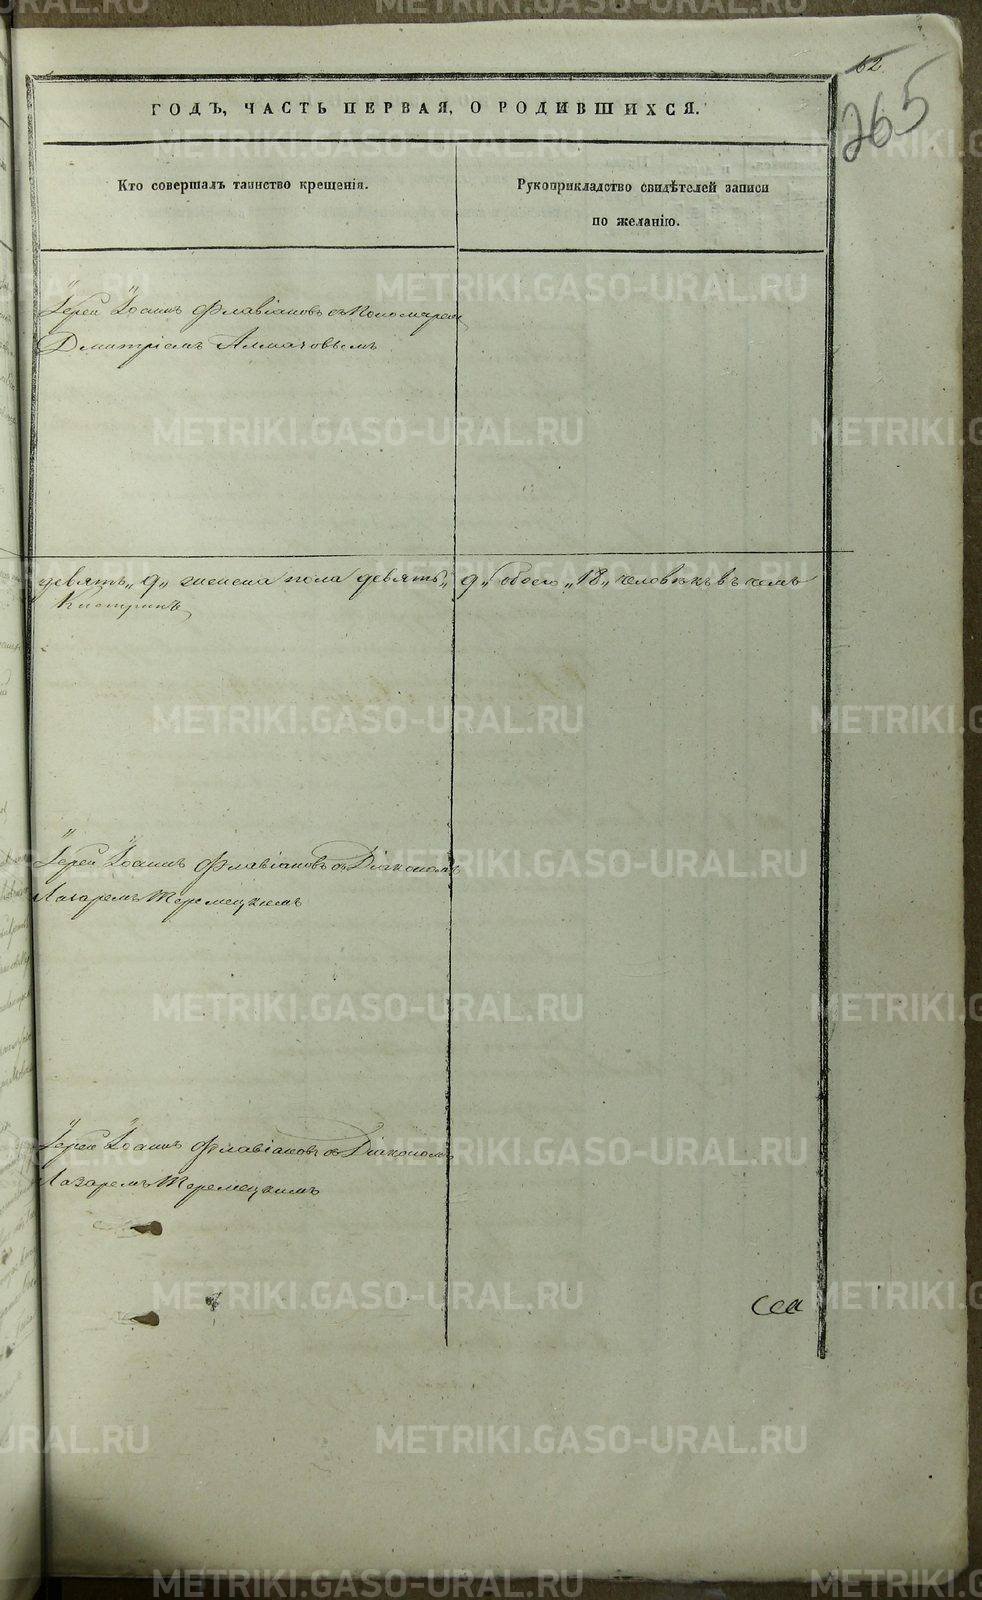 62.
265
ГОДЪ, ЧАСТЬ ПЕРВАЯ, О РОДИВШИХСЯ.
Кто совершалъ таинство крещенія.
Рукоприкладство свидѣтелей записи
по желанію.
Іерей Іоаннъ Флавіановъ съ Пономаремъ
Дмитріемъ Алмазовымъ
девять „9„ женска пола девять „9„ обоего „18„ человѣкъ въ чемъ
Іерей Іоаннъ Флавіановъ съ Діакономъ
Лазаремъ Теремецкимъ
Іерей Іоаннъ Флавіановъ съ Діакономъ
Лазаремъ Теремецкимъ
METRIKI.GASO-URAL.RU